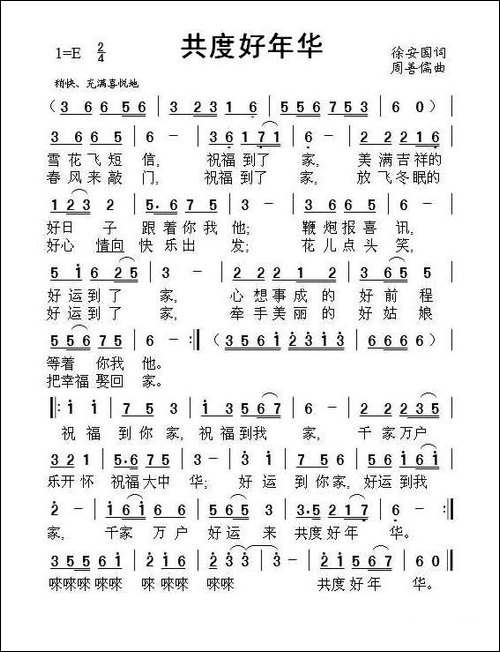 共度好年华
1=E 2/4
徐安国词
周善儒曲
稍快、充满喜悦地
(3 6 6 5 6 | 3 2 3 1 6 | 5 5 6 7 5 3 | 6 6 0) |
3 6 6 7 5 | 6 - | 3 6 1 7 1 | 6 - | 3 6 5 6 |
雪花飞短信，祝福到了家，美满吉祥的
春风来敲门，祝福到了家，放飞冬眠的
1 2 3 2 | 5· 6 7 5 | 6 - | 3 6 6 5 | 3 - |
好日子跟着你我他；鞭炮报喜讯，
好心情向快乐出发；花儿点头笑，
5 1 6 2 5 | 3 - | 2 2 2 1 | 2 2 | 3 6 5 5 |
好运到了家，心想事成的好前程
好运到了家，牵手美丽的好姑娘
5 5 6 7 | 6 - :| (3 5 6 1 2 3 1 3 | 6 6 6 6) |
等着你我他。
把幸福娶回家。
|: 1 · 1 | 7 5 3 | 1 3 5 6 7 | 6 - | 2 2 2 3 5 |
祝福到你家，祝福到我家，千家万户
3 2 1 | 5· 6 7 5 | 6 - | 1 · 1 | 7 5 3 | 5 6 1 6 1 |
乐开怀祝福大中华；好运到你家，好运到我
2 - | 7 6 7 6 5 | 3 5 6 1 | 3· 5 2 1 7 | 6 - :|
家，千家万户好运来共度好年华。
3 5 5 5 6 1 | 6 5 6 1 | 2 3 3 | 2 1 2 6 7 | 6 6 0 ‖
唻唻唻唻唻唻唻唻唻共度好年华。